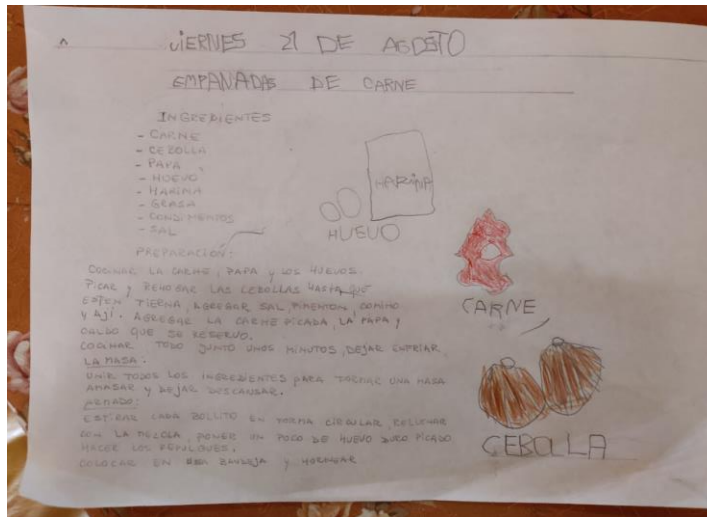 VIERNES 21 DE AGOSTO
EMPANADAS DE CARNE
INGREDIENTES
- CARNE
- CEBOLLA
- PAPA
- HUEVO
- HARINA
- GRASA
- CONDIMENTOS
- SAL
HARINA
HUEVO
PREPARACION:
COCINAR LA CARNE, PAPA Y LOS HUEVOS.
PICAR Y REHOGAR LAS CEBOLLAS HASTA QUE
ESTEN TIERNA, AGREGAR SAL, PIMENTON, COMINO
Y AJÍ. AGREGAR LA CARNE PICADA, LA PAPA Y
CALDO QUE SE RESERVO.
COCINAR TODO JUNTO UNOS MINUTOS, DEJAR ENFRIAR
LA MASA.
UNIR TODOS LOS INGREDIENTES PARA FORMAR UNA MASA
AMASAR Y DEJAR DESCANSAR.
ARMADO:
ESTIRAR CADA BOLLITO EN FORMA CIRCULAR, RELLENAR
CON LA MEZCLA, PONER UN POCO DE HUEVO DURO PICADO
HACER LOS REPULGUES.
COLOCAR EN BANDEJA Y HORNEAR
CARNE
CEBOLLA